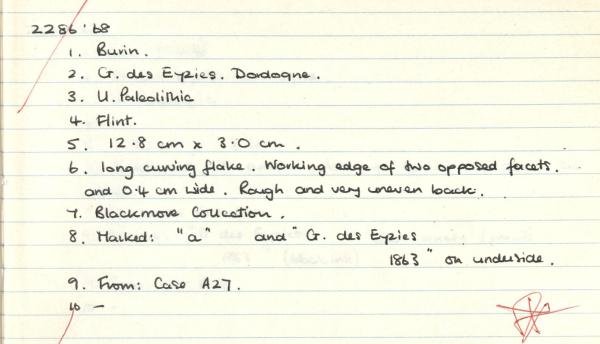 2286·68
1. Burin.
2. Gr. des Eyzies. Dordogne.
3. U. Paleolithic
4. Flint.
5. 12.8 cm x 3.0 cm.
6. long curving flake. Working edge of two opposed facets.
and 0.4 cm wide. Rough and very uneven back.
7. Blackmore Collection.
8. Marked: "a" and "Gr. des Eyzies
1863" on underside.
9. From: Case A27.
10 —